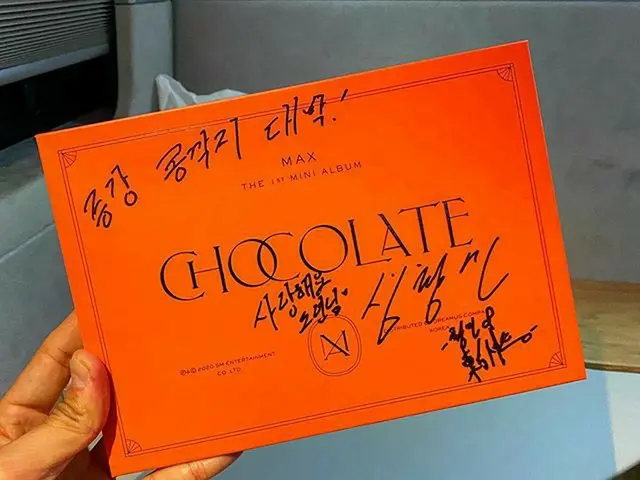 종강 콩깍지 대박!
MAX
THE 1ST MINI ALBUM
CHOCOLATE
사랑해요
심창민
℗© 2020 SM ENTERTAINMENT
CO. LTD
DISTRIBUTED BY DREAMUS COMPANY
KOREA